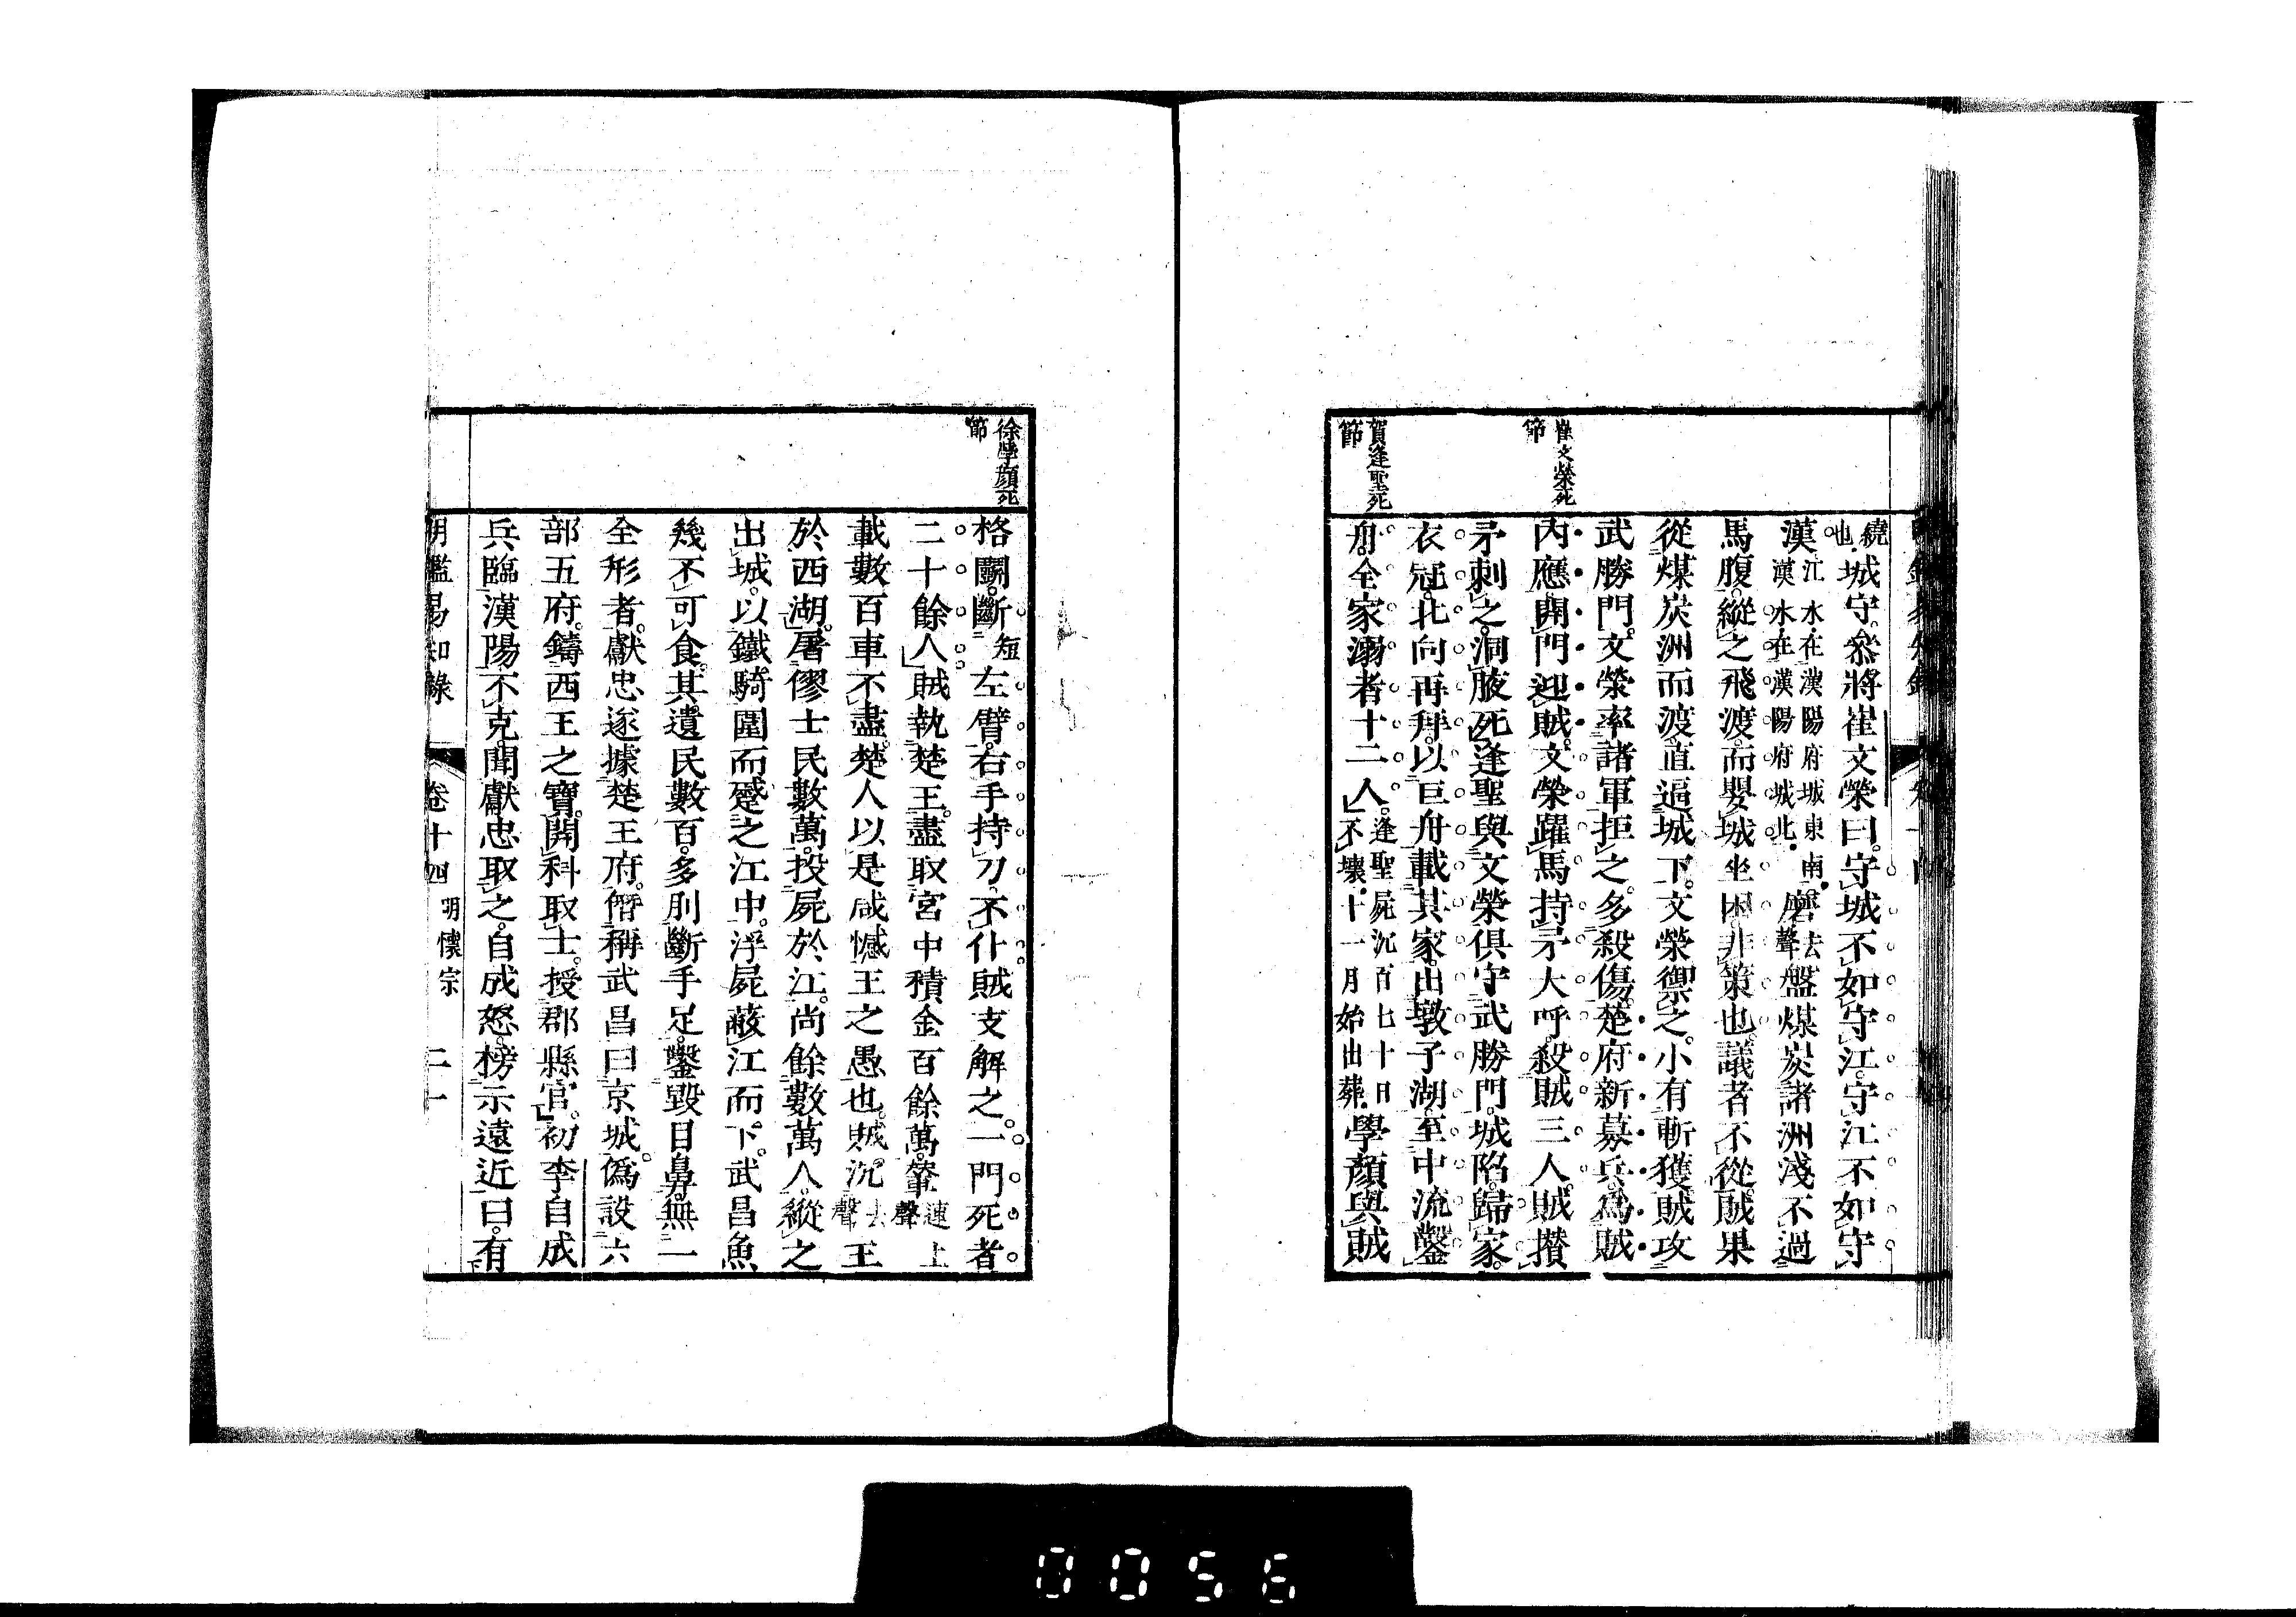 崔文榮死
節
賀逢聖死
節
繞也城守參將崔文榮曰守城不如守江守江不如守
漢江水在漢陽府城東南漢水在漢陽府城北磨去聲盤煤炭諸洲淺不過
馬腹縱之飛渡而嬰城坐困非策也議者不從賊果
從煤炭洲而渡直逼城下文榮禦之小有斬獲賊攻
武勝門文榮率諸軍拒之多殺傷楚府新募兵爲賊
內應開門迎賊文榮躍馬持矛大呼殺賊三人賊攢
矛刺之洞腋死逢聖與文榮俱守武勝門城陷歸家
衣冠北向再拜以巨舟載其家出墩子湖至中流鑿
舟全家溺者十二人逢聖屍沉百七十日不壞十一月始出葬學顏與賊
徐學顏死
節
格鬭斷短左臂右手持刀不仆賊支解之一門死者
二十餘人賊執楚王盡取宮中積金百餘萬輦連上聲
載數百車不盡楚人以是咸憾王之愚也賊沉去聲王
於西湖屠僇士民數萬投屍於江尚餘數萬人縱之
出城以鐵騎圍而蹙之江中浮屍蔽江而下武昌魚
幾不可食其遺民數百多刖斷手足鑿毀目鼻無一
全形者獻忠遂據楚王府僭稱武昌曰京城僞設六
部五府鑄西王之寶開科取士授郡縣官初李自成
兵臨漢陽不克聞獻忠取之自成怒榜示遠近曰有
明鑑易知錄 卷十四 明懷宗 二十一
0056